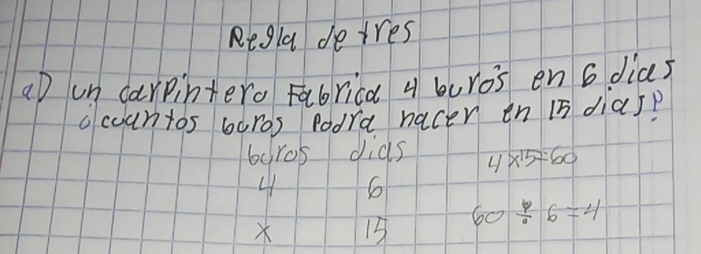 Regla de tres
a) un carpintero Fabrica 4 burós en 6 dias
¿cuantos buros Podra hacer en 15 dias?
buros dias 4x15=60
4 6
x 15 60 ÷ 6 = 4